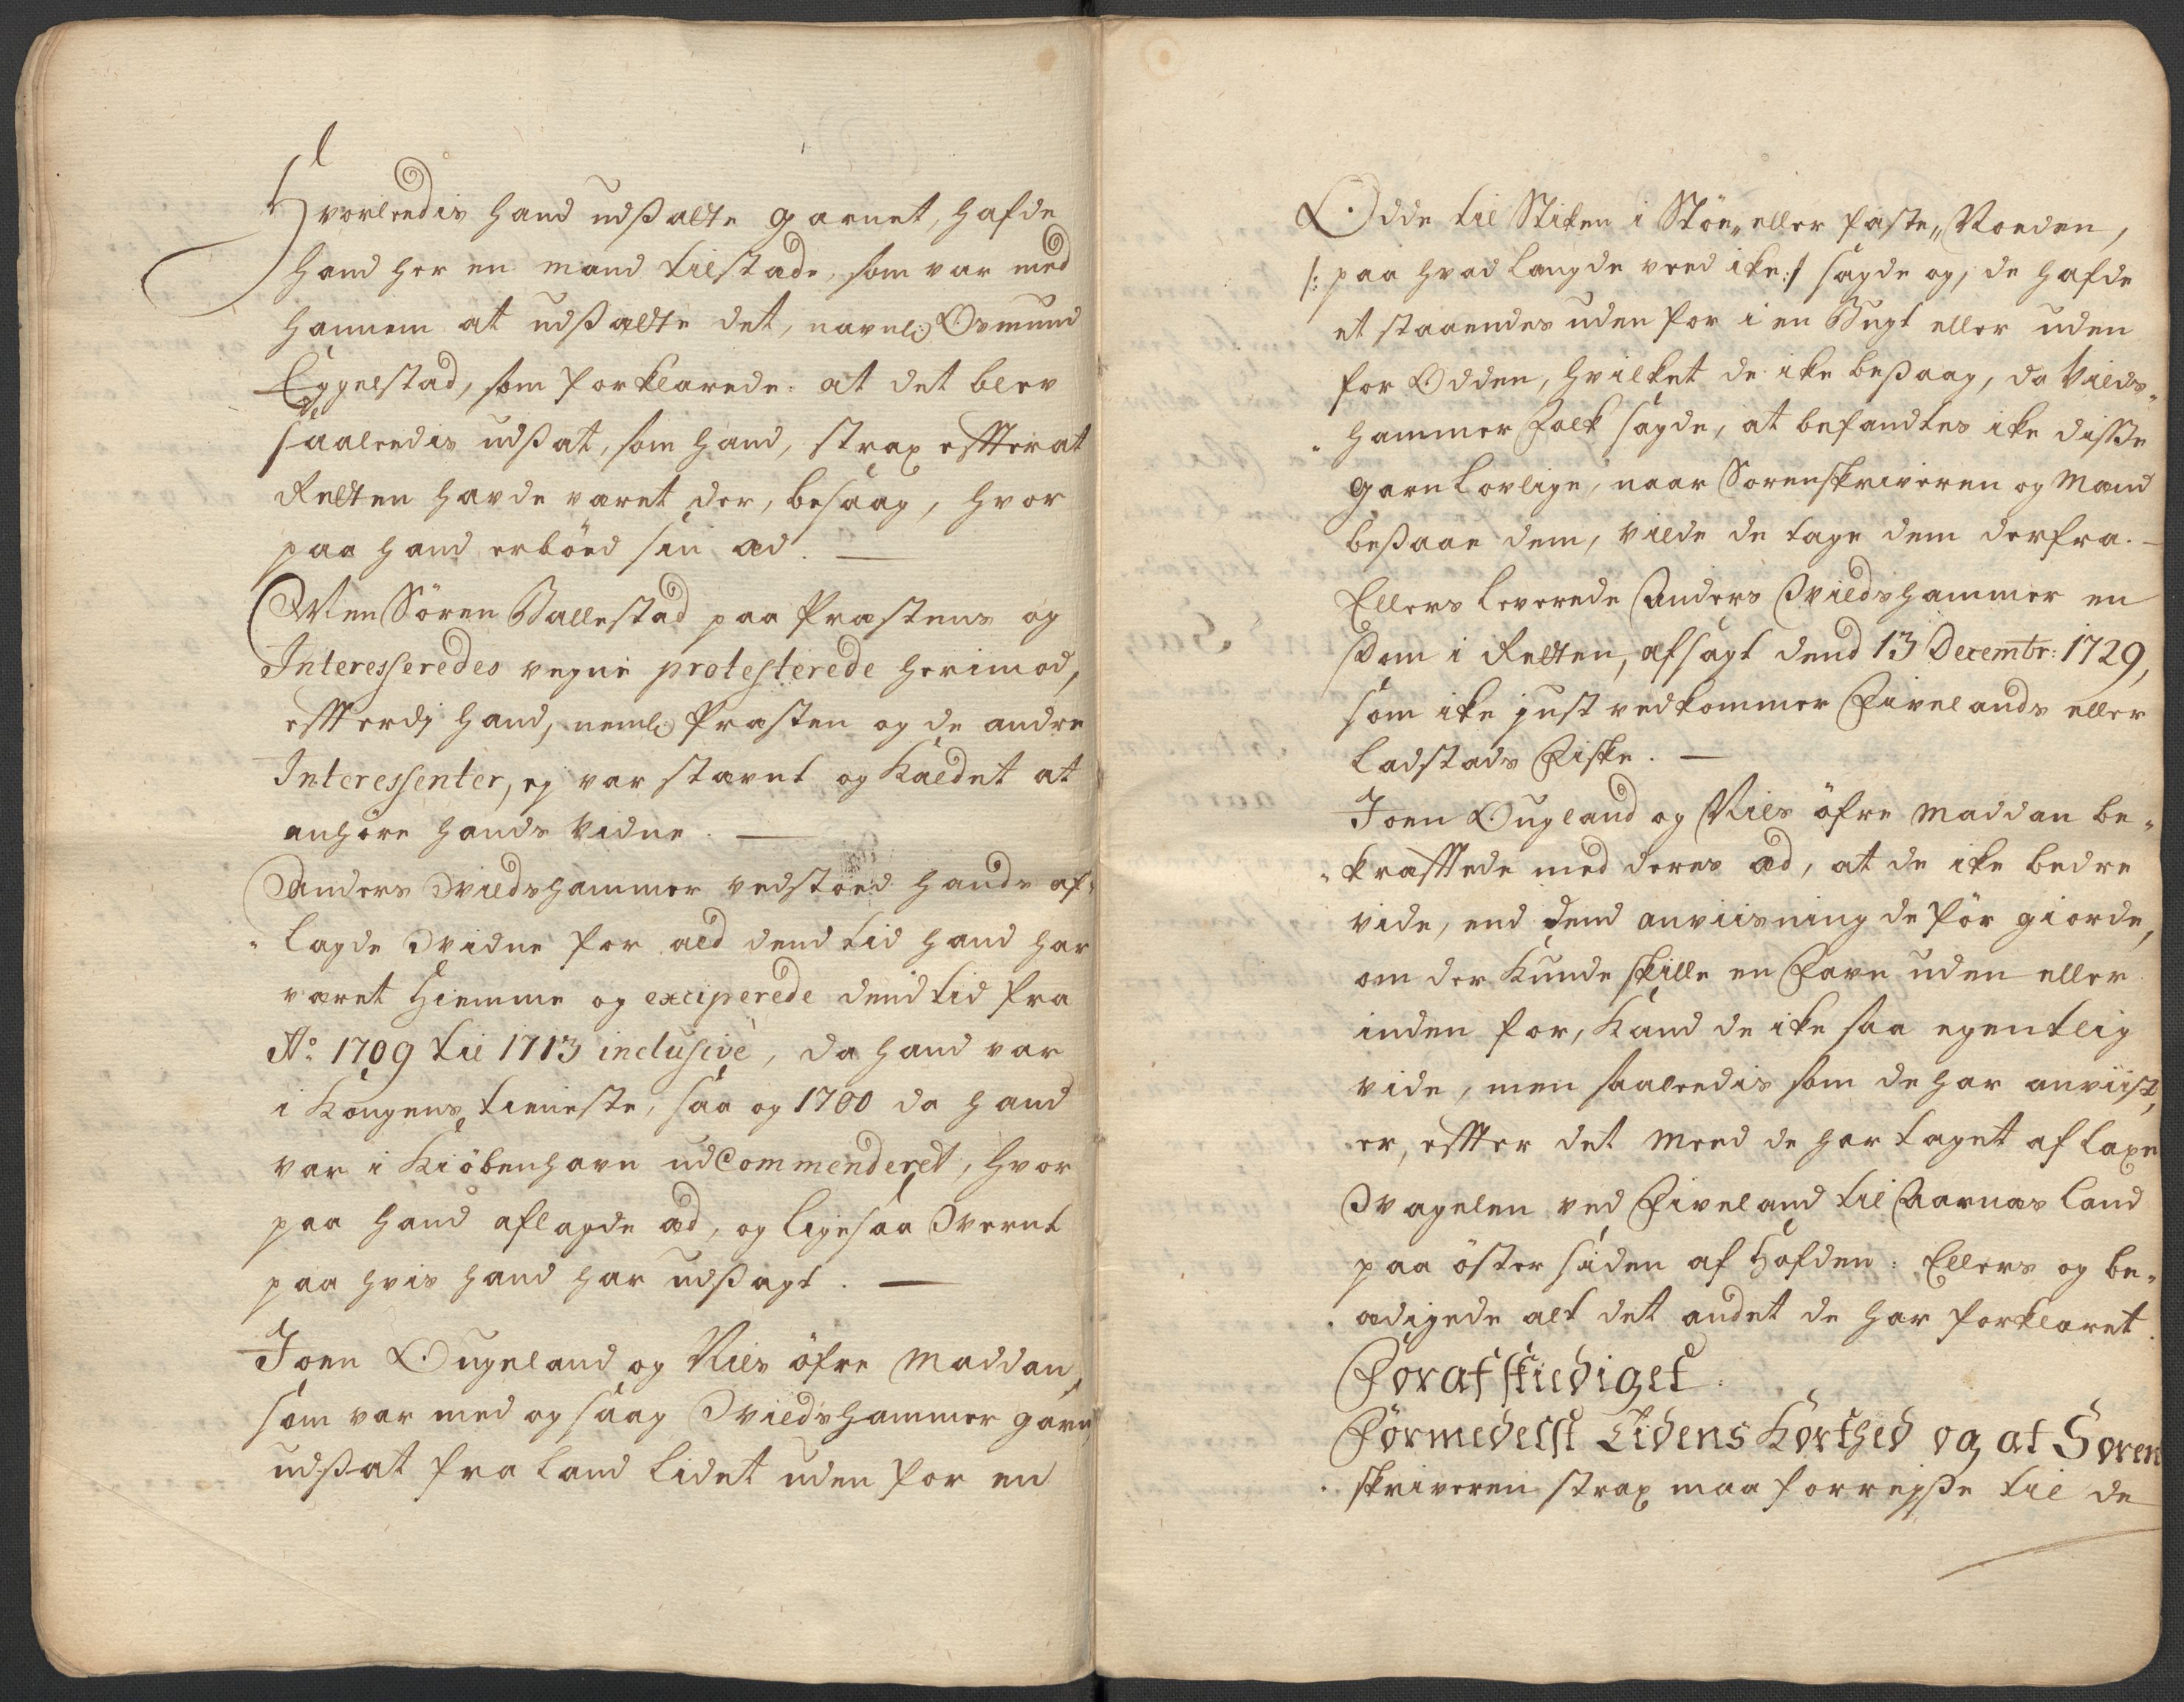 Hvorleedis hand udsatte garnet, hafde
hand her en mand tilstæde, som var med
hannem at udsætte det, navnl: Osmund
Eggelstad, som forklarede: at det blev
saaleedis udsat, som hand, strax effterat
Retten havde været der, besaag, hvor
paa hand erböed sin æd. —
Men Sören Ballestad paa Præstens og
Interesseredes vegne protesterede herimod,
effterdj hand, neml: Præsten og de andre
Interessenter, ej var stævnt og Kaldet at
anhöre hands Vidne. —
Anders Qvildshammer vedstoed hands af„
„lagde Qvidne for ald dend tid hand har
været Hiemme og exciperede dend tid fra
Ao: 1709 til 1713 inclusivè, da hand var
i Kongens tieneste, saa og 1700 da hand
var i Kiöbenhavn udCommenderet, hvor
paa hand aflagde æd, og ligesaa Qvernt
paa hvis hand har udsagt. —
Joen Ougeland og Niels öfre Maddan,
som var med og saag Qvildshammer garn
udsat fra land lidet uden for en
Odde til Stiken i Stöe„ eller faste„ Noeden,
/: paa hvad længde veed ike :/ sagde og, de hafde
et staaendes uden for i en Bugt eller uden
for Odden, hvilket de ike besaag, da Vilds„
„hammer Folk sagde, at befandtes ike disse
garn lovlige, naar Sorenskriveren og Mænd
besaae dem, vilde de tage dem derfra. —
Ellers leverede Anders Qvildshammer en
Dom i Retten, afsagt dend 13 Decembr: 1729,
som ike just vedkommer Fivelands eller
Ladstads Fiske. —
Joen Ougland og Niels öfre Maddan be„
„kræfftede med deres æd, at de ike bedre
vide, end dend anviisning de för giorde,
om der Kunde skille en Favn uden eller
inden for, Kand de ike saa egentlig
vide, men saaleedis som de har anviist,
er, effter det Meed de har taget af laxe
Qvagelen ved Fiveland til Aarnæs land
paa öster siden af Hofden: Ellers og be„
„ædigede alt det andet de har forklaret.
Forafskediget.
Formedelst Tidens Korthed og at Soren
„skriveren strax maa forrejse til de